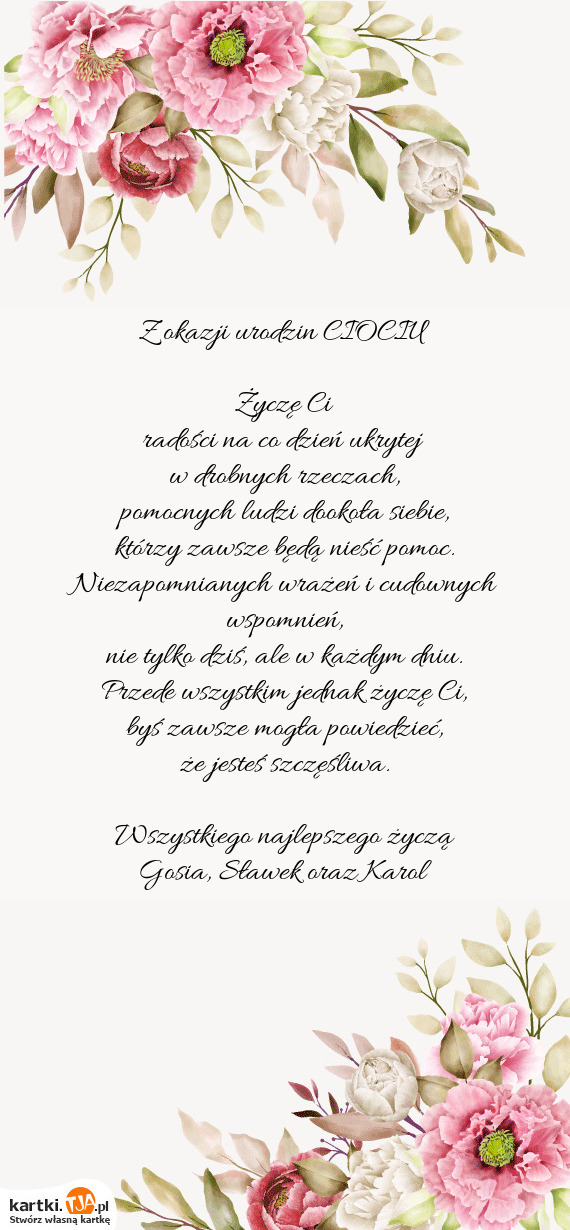 Z okazji urodzin CIOCIU
Życzę Ci
radości na co dzień ukrytej
w drobnych rzeczach,
pomocnych ludzi dookoła siebie,
którzy zawsze będą nieść pomoc.
Niezapomnianych wrażeń i cudownych
wspomnień,
nie tylko dziś, ale w każdym dniu.
Przede wszystkim jednak życzę Ci,
byś zawsze mogła powiedzieć,
że jesteś szczęśliwa.
Wszystkiego najlepszego życzą
Gosia, Sławek oraz Karol
kartki.TJA.pl
Stwórz własną kartkę